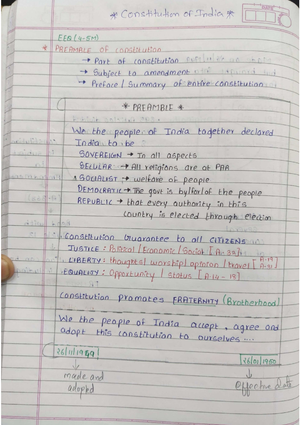 * Constitution of India *
FEB (4-5M)
* PREAMBLE of constitution
→ Part of constitution
→ Subject to amendment
→ Preface / Summary of entire constitution
* PREAMBLE *
We the people of India together declared
India to be
SOVEREIGN → In all aspects
SECULAR → All religions are at PAR
SOCIALIST → welfare of people
DEMOCRATIC → The govt is by/for/of the people
REPUBLIC → that every authority in this
country is elected through election
Constitution Guarantee to all CITIZENS
JUSTICE : Political / Economic / Social
LIBERTY : thoughts / worship / opinion / travel [A-19] [A-21]
EQUALITY : Opportunity / status [A-14 - 18]
Constitution promotes FRATERNITY (Brotherhood)
We the people of India accept, agree and
adopt this constitution to ourselves ...
26/11/1949 26/01/1950
made and effective date
adopted